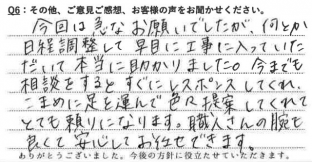 Q6：その他、ご意見ご感想、お客様の声をお聞かせください。
今回は急なお願いでしたが、何とか
日程調整して早目に工事に入っていた
だいて本当に助かりました。今までも
相談をするとすぐにレスポンスしてくれ、
こまめに足を運んで色々提案してくれて
とても頼りになります。職人さんの腕も
良くて安心してお任せできます。
ありがとうございました。今後の方針に役立たせていただきます。